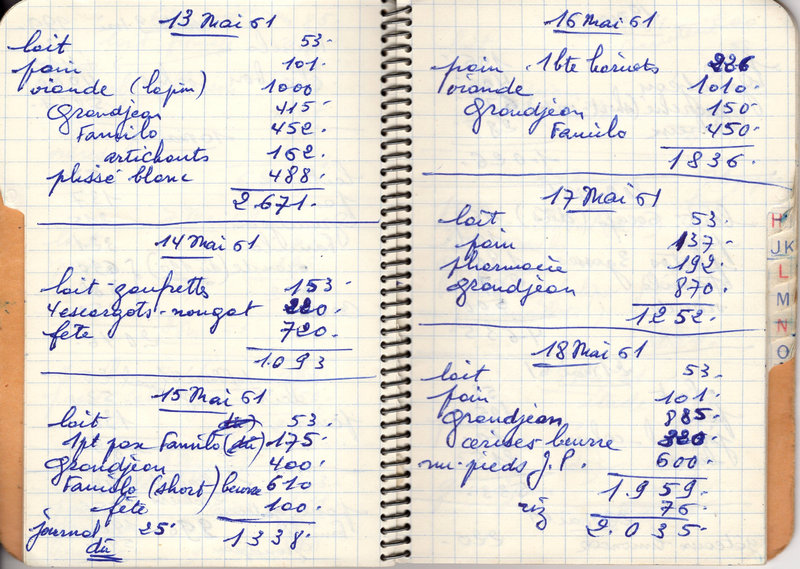 13 Mai 61
lait 53.
pain 101.
viande (lapin) 1000
Grandjean 415.
Familo 452.
artichauts 162.
plissé blanc 488.
2.671.
14 Mai 61
lait-gaufrettes 153.
4 escargots-nougat 220.
fête 720.
1.093
15 Mai 61
lait 53.
1pt pax Familo (dû) 175.
Grandjean 400.
Familo (short) beurre 610
fête 100.
journal 25.
dû
1338.
16 Mai 61
pain. 1bte 226
viande 1010.
Grandjean 150.
Familo 450.
1836.
17 Mai 61
lait 53.
pain 137.
pharmacie 192.
Grandjean 870.
1252.
18 Mai 61
lait 53.
pain 101.
Grandjean 885.
cerises-beurre 320.
nu-pieds J.P. 600.
1.959.
riz 76.
2.035.
H
J K
L
M
N
O